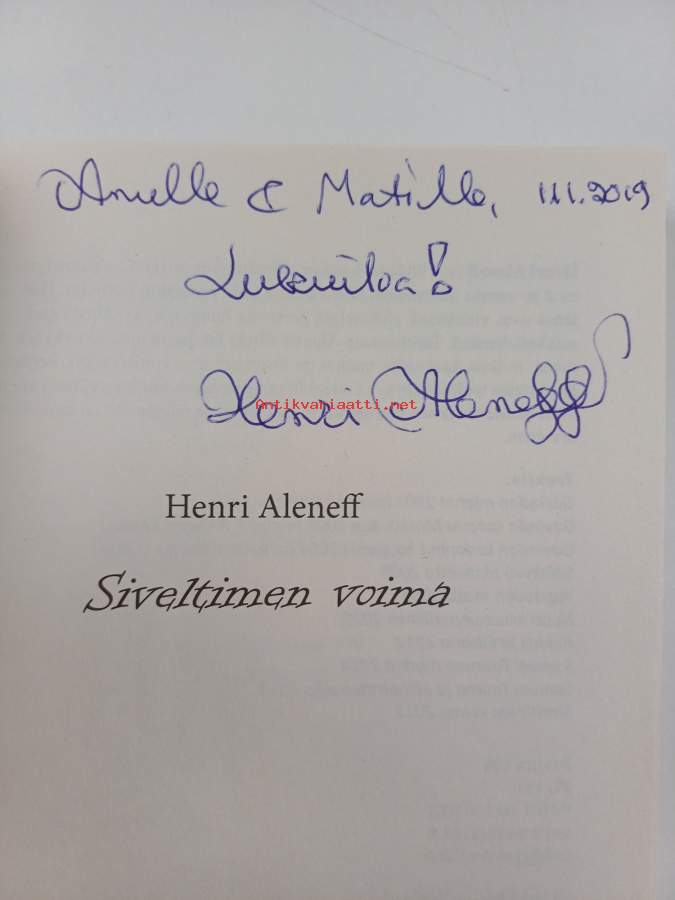 Anulle & Matille, 11.1.2019
Lukuiloa!
Henri Aleneff
Antikvariaatti.net
Henri Aleneff
Siveltimen voima